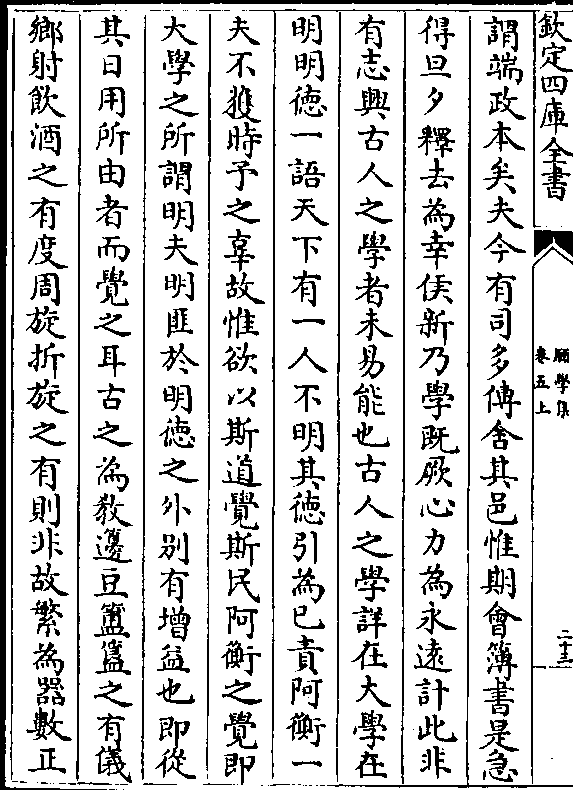 欽定四庫全書
願學集
卷五上
二十三
謂端政本矣夫今有司多傳舍其邑惟期會簿書是急
得旦夕釋去為幸侯新乃學既厥心力為永遠計此非
有志興古人之學者未易能也古人之學詳在大學在
明明徳一語天下有一人不明其徳引為已責阿衡一
夫不獲時予之辜故惟欲以斯道覺斯民阿衡之覺即
大學之所謂明夫明匪於明徳之外别有增益也即從
其日用所由者而覺之耳古之為教邊豆簠簋之有儀
鄉射飲酒之有度周旋折旋之有則非故繁為器數正